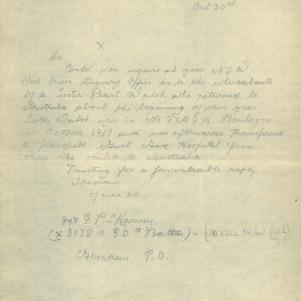 Oct 20th
X
Sir
Could you inquire at your N.S.W
Red Cross Inquiry Office as to the whereabouts
of a Sister Pearl Walsh who returned to
Australia about the beginning of this year
Sister Walsh was in No 2 A.G.H. Boulogne
in October 1917 and was afterwards transferred
to Harefield Hospital from
where she sailed to Australia
Trusting for a favourable reply
I remain
Yours etc
Mr G. P.
(X 3178 A 50th Battn)
P.O.